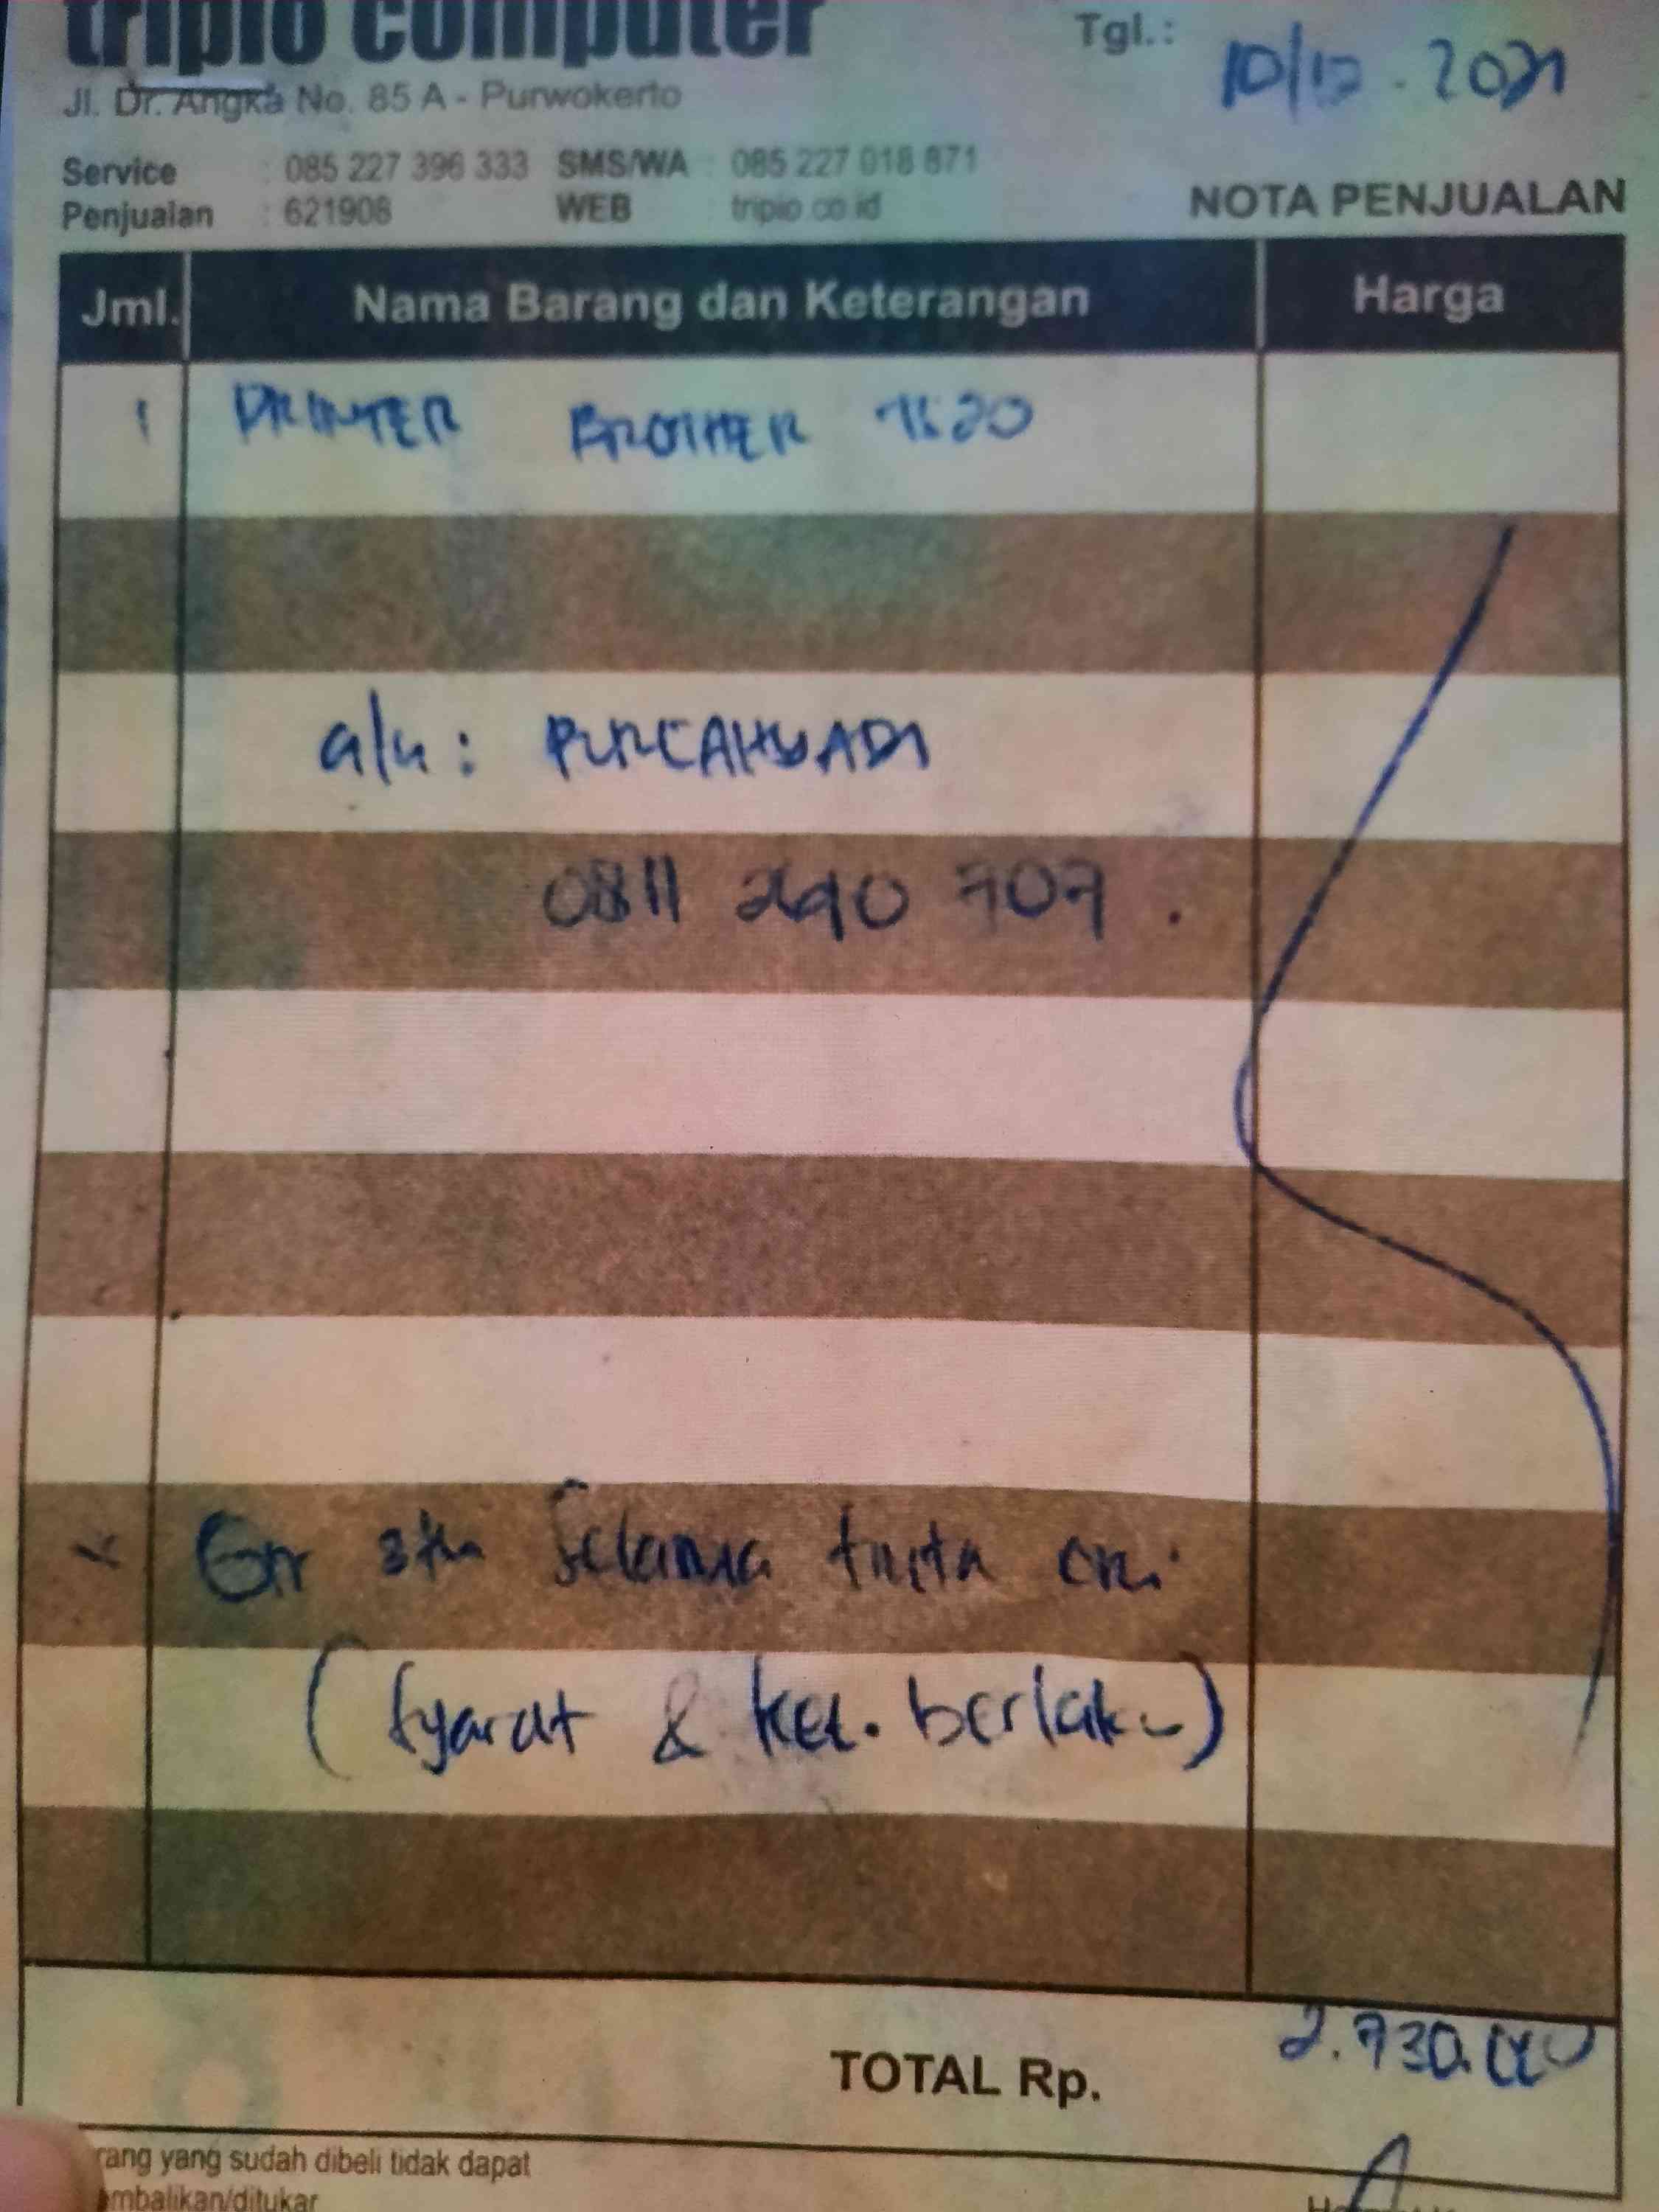 tripio computer
Tgl.: 10/12 - 2021
Jl. Dr. Angka No. 85 A - Purwokerto
Service : 085 227 396 333 SMS/WA : 085 227 018 871
Penjualan : 621908 WEB : tripio.co.id
NOTA PENJUALAN
Jml. Nama Barang dan Keterangan Harga
1 PRINTER BROTHER
a/n : PURCAHYADI
0811 290 707 .
Grr 3 thn Selama tinta ori.
(Syarat & ket. berlaku)
TOTAL Rp. 2.730.000
rang yang sudah dibeli tidak dapat
mbalikan/ditukar